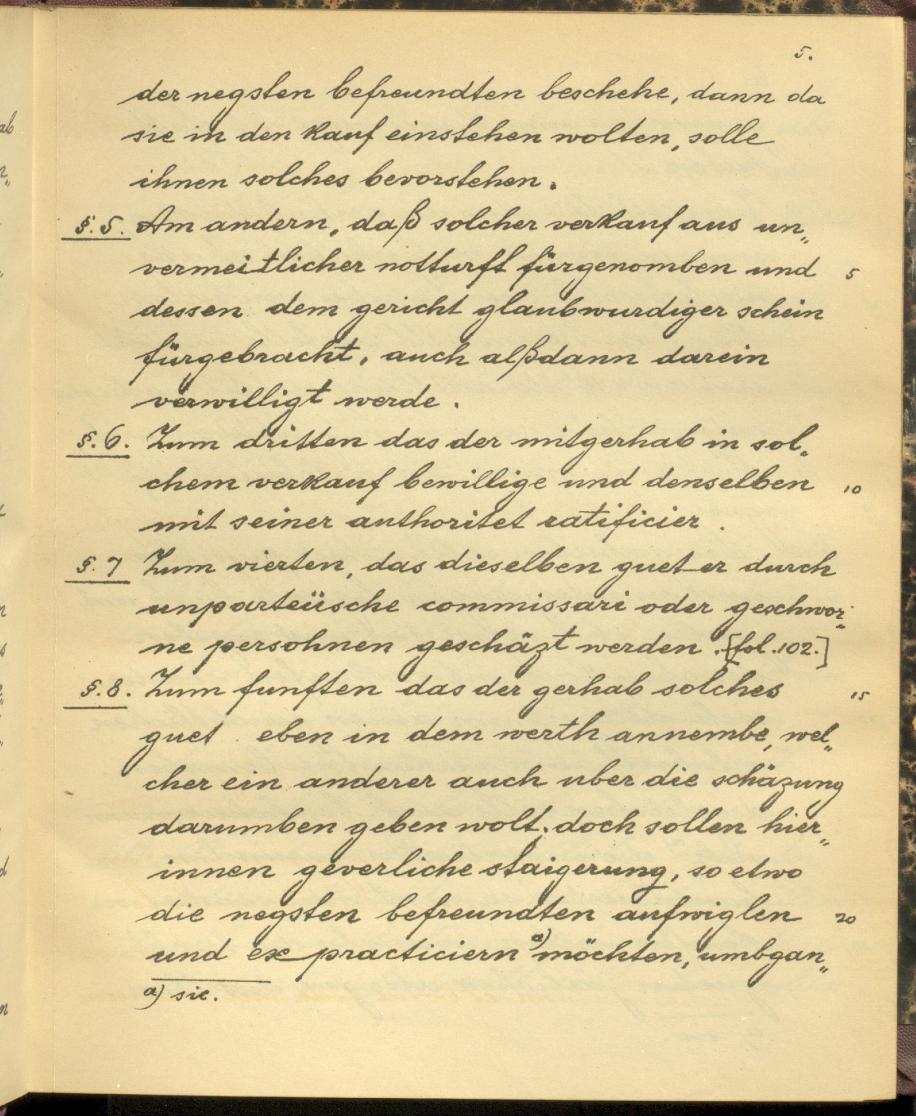 5.
der negsten befreundten beschehe, dann da
sie in den kauf einstehen wolten, solle
ihnen solches bevorstehen.
§.5. Am andern, daß solcher verkauf aus un„
vermeitlicher notturft fürgenomben und 5
dessen dem gericht glaubwurdiger schein
fürgebracht, auch alßdann darein
verwilligt werde.
§.6. Zum dritten das der mitgerhab in sol„
chem verkauf bewillige und denselben 10
mit seiner authoritet ratificier.
§.7 Zum vierten, das dieselben gueter durch
unparteüsche commissari oder geschwor„
ne persohnen geschäzt werden. [fol.102.]
§.8. Zum funften das der gerhab solches 15
guet eben in dem werth annembe, wel„
cher ein anderer auch uber die schäzung
darumben geben wolt; doch sollen hier„
innen geverliche staigerung, so etwo
die negsten befreundten aufwiglen 20
und ex practiciern a) möchten, umbgan„
a) sic.